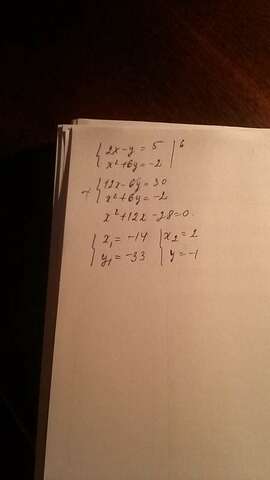 { 2x-y = 5 | 6
{ x²+6y = -2
+ { 12x-6y = 30
{ x²+6y = -2
x²+12x -28=0.
{ x₁ = -14 { x₂ = 2
{ y₁ = -33 { y = -1